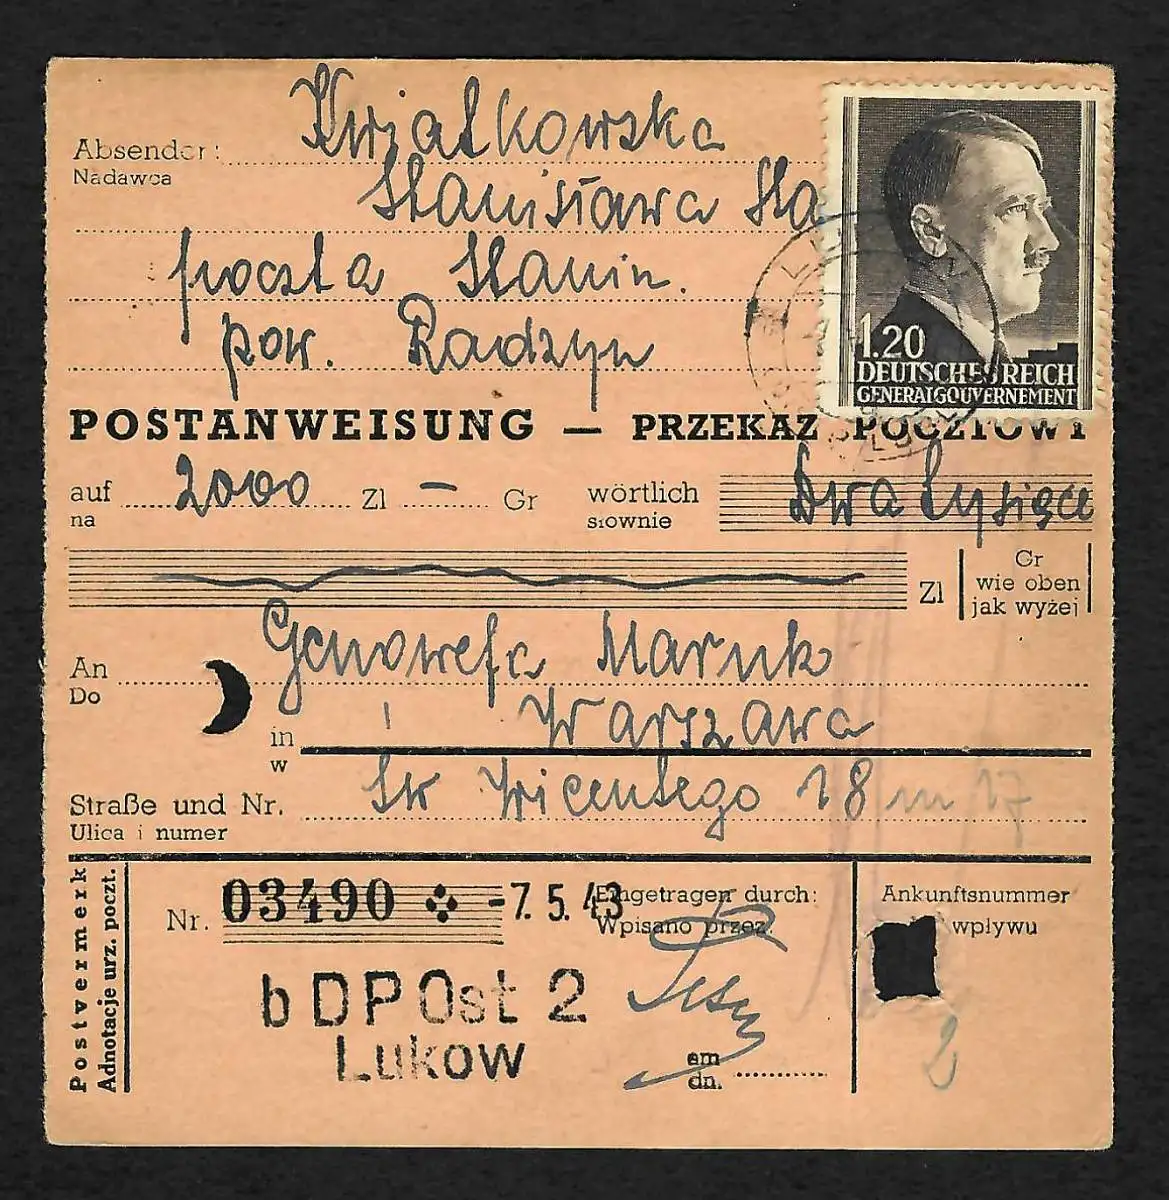 Absender: Kwiatkowska
Nadawca
Stanisława Sta
poczta Stanin.
pow. Radzyn
1.20
DEUTSCHES REICH
GENERALGOUVERNEMENT
POSTANWEISUNG — PRZEKAZ POCZTOWY
auf 2000 Zl — Gr wörtlich Dwa tysiące
na słownie
Zl Gr
wie oben
jak wyżej
An Genowefa Maruk
Do
in Warszawa
w
Straße und Nr. Św Wicentego 18 m 17
Ulica i numer
Postvermerk
Adnotacje urz. poczt.
Nr. 03490 -7. 5. 43
Eingetragen durch:
Wpisano przez:
Ankunftsnummer
wpływu
b DP Ost 2
Lukow
am
dn.
2